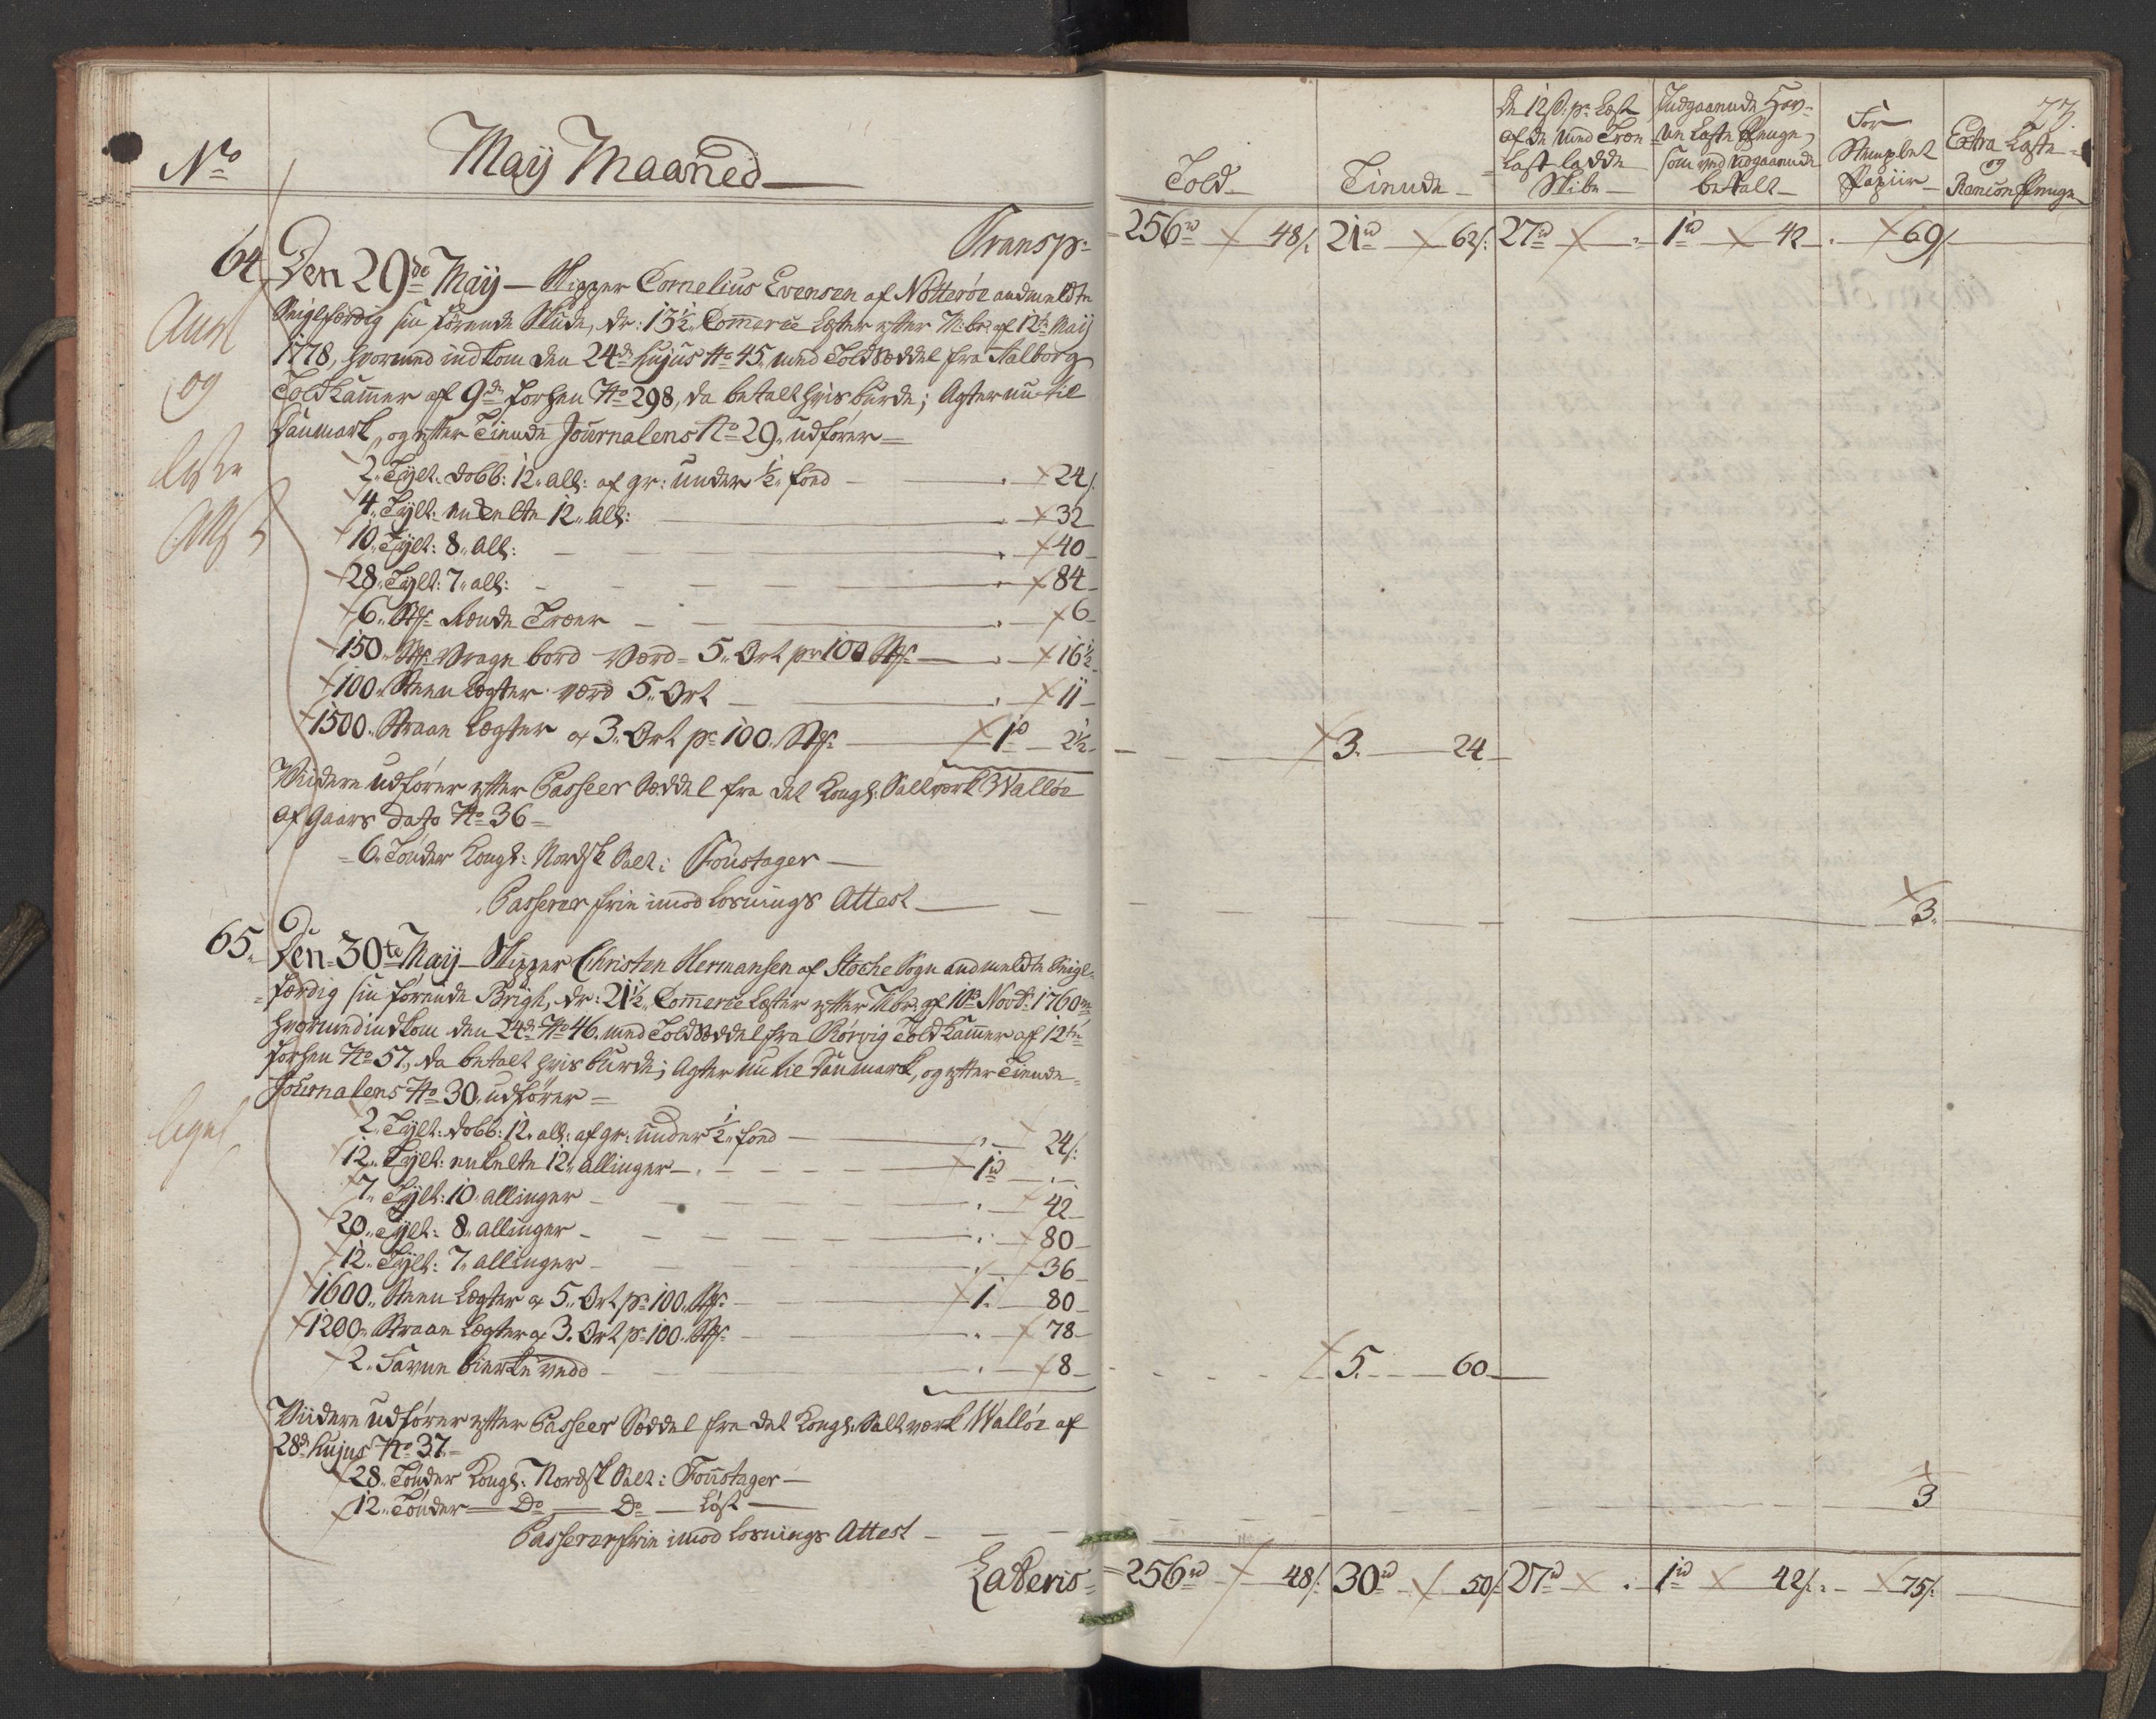 77.
No
Maÿ Maaned
Told
Tiende
De 12 s: pr Læst
af de med Træe
Last ladde
Skibe
Indgaaende Hav-
ne Laste Penge,
som ved udgaaende
betalt
For
Stemplet
Papiir
Extra Laste
og
Rancon Penge
Transp:
256rd 48/: 21rd 62/: 27rd . 1rd 42 . 69/
64. Den 29de Maÿ Skipper Cornelius Evensen af Nötteröe andmeldte
Seiglfærdig sin förende Skude, dr: 13½ Commerce Læster efter M:br: af 12te Maÿ
1778, hvormed indkom den 24de hujus No 45, med Toldsæddel fra Aalborg
Toldkammer af 9de forhen No 298, da betalt hvis burde; Agter nu til
Danmark, og efter Tiende Journalens No 29, udförer
2. Tÿlt. dobb: 12. all: af gr: under ½ fod . 24/:
4. Tÿlt. enkelte 12. all: . 32
10. Tÿlt: 8. all: . 40
28. Tÿlt: 7. all: . 84
6. St: Rende Træer . 6
150. St: Vrage bord værd 5. Ort pr 100 St: . 16½
100. Steen Lægter værd 5. Ort . 11
1500. Straae Lægter a 3. Ort pr 100. St: 1rd 2½
3. 24
Viidere udförer efter Passeer Sæddel fra det Kongl: Saltværk Walløe
af Gaars Dato No 36
6. Tönder Kongl: Nordsk Salt i Foustager
Passerer frie imod losnings Attest
3.
65. Den 30te Maÿ Skipper Christen Hermansen af Stoche Sogn andmeldte Seigl-
færdig sin förende Brigh, dr: 21½ Commerce Læster efter M:br: af 10de Novbr: 1760
hvormed indkom den 24de No 46. med Toldsæddel fra Rörvig Toldkammer af 12te
forhen No 57, da betalt hvis burde; Agter nu til Danmark, og efter Tiende
Journalens No 30. udförer
2. Tÿlt: dobb: 12. all: af gr: under ½ fod . 24/:
12. Tÿlt: enkelte 12. allinger 1rd .
7. Tÿlt: 10. allinger . 42
20. Tÿlt: 8. allinger . 80
12. Tÿlt: 7. allinger . 36
1600. Steen Lægter a 5. Ort pr 100. St: 1. 80
1200. Straae Lægter a 3. Ort pr 100. St: . 78
2. Favne birke vedd . 8
5. 60
Viidere udförer efter Passeer Sæddel fra det Kongl: Saltværk Wallöe af
28de hujus No 37.
28. Tönder Kongl: Nordsk Salt i Foustager
12. Tönder Do Do löst
Passerer frie imod losnings Attest
3
Lateris
256rd 48/: 30rd 50/: 27rd . 1rd 42/: . 75/:
og